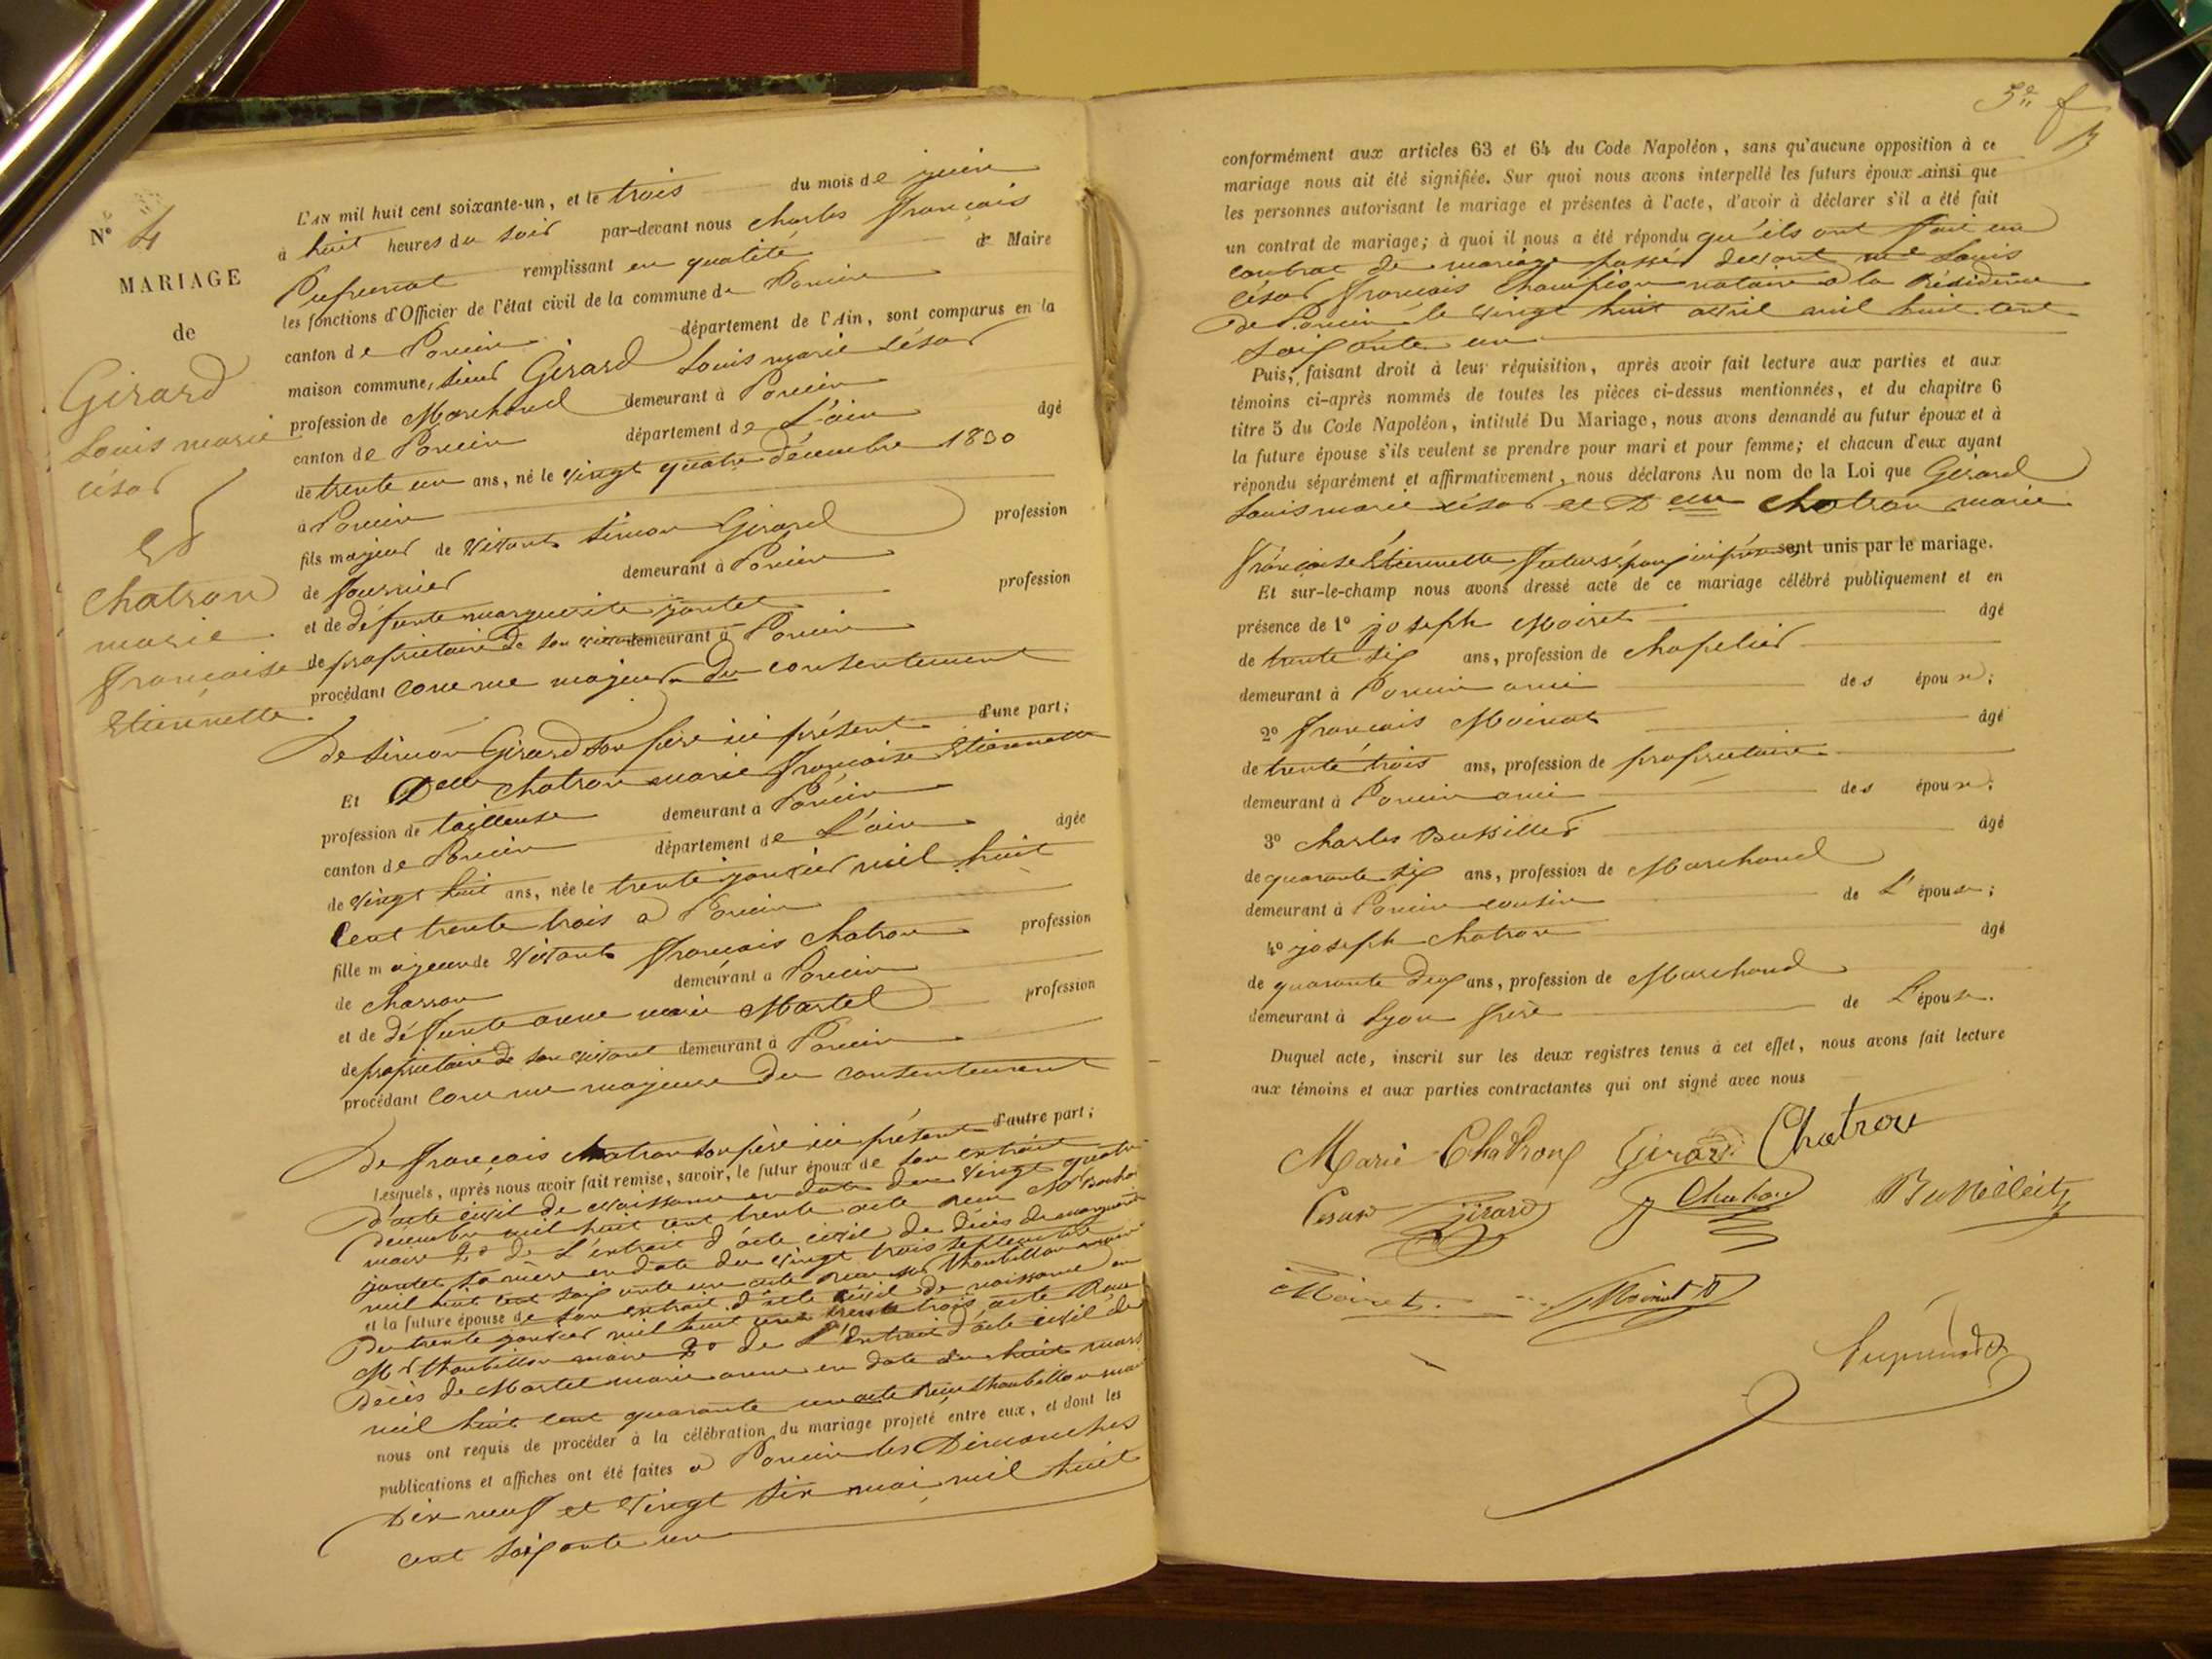 N° 4
MARIAGE
de
Girard
Louis marie
césar
Et
Chatron
marie
françoise
Etiennette
L'AN mil huit cent soixante-un, et le trois du mois de juin
à huit heures du soir par-devant nous charles françois
remplissant en qualité de Maire
les fonctions d'Officier de l'état civil de la commune de Poncin
canton de Poncin département de l'Ain, sont comparus en la
maison commune, sieur Girard Louis marie césar
profession de Marchand demeurant à Poncin
canton de Poncin département de L'ain âgé
de trente un ans, né le vingt quatre décembre 1830
à Poncin
fils majeur de vivant simon Girard profession
de fournier demeurant à Poncin
et de défunte marguerite jantet profession
de propriétaire de son vivant demeurant à Poncin
procédant comme majeur du consentement
de simon Girard son père ici présent d'une part;
Et Delle chatron marie françoise Etiennette
profession de tailleuse demeurant à Poncin
canton de Poncin département de L'ain âgée
de vingt huit ans, née le trente janvier mil huit
cent trente trois a Poncin
fille majeure de vivant françois chatron profession
de charron demeurant à Poncin
et de défunte anne marie Martel profession
de propriétaire de son vivant demeurant à Poncin
procédant comme majeure du consentement
de françois chatron son père ici présent d'autre part;
Lesquels, après nous avoir fait remise, savoir, le futur époux de son extrait
d'acte civil de naissance en date du vingt quatre
décembre mil huit cent trente acte reçu Mr
maire 2° de L'extrait d'acte civil de décès de marguerite
jantet sa mère en date du vingt trois septembre
mil huit cent soixante un acte reçu Mr thoubillon maire
et la future épouse de son extrait d'acte civil de naissance en
du trente janvier mil huit cent trente trois acte Reçu
Mr thoubillon maire 2° de L'Extrait d'acte civil de
Décès de Martel marie anne en date du huit mars
mil huit cent quarante un acte Reçu thoubillon maire
nous ont requis de procéder à la célébration du mariage projeté entre eux, et dont les
publications et affiches ont été faites a Poncin les Dimanches
dix neuf et vingt six mai mil huit
cent soixante un
conformément aux articles 63 et 64 du Code Napoléon, sans qu'aucune opposition à ce
mariage nous ait été signifiée. Sur quoi nous avons interpellé les futurs époux ainsi que
les personnes autorisant le mariage et présentes à l'acte, d'avoir à déclarer s'il a été fait
un contrat de mariage; à quoi il nous a été répondu qu'ils ont fait un
contrat de mariage passé devant me Louis
césar françois Champion notaire a la Résidence
de Poncin le vingt huit avril mil huit cent
soixante un
Puis, faisant droit à leur réquisition, après avoir fait lecture aux parties et aux
témoins ci-après nommés de toutes les pièces ci-dessus mentionnées, et du chapitre 6
titre 5 du Code Napoléon, intitulé Du Mariage, nous avons demandé au futur époux et à
la future épouse s'ils veulent se prendre pour mari et pour femme; et chacun d'eux ayant
répondu séparément et affirmativement, nous déclarons Au nom de la Loi que Girard
Louis marie césar et Delle chatron marie
françoise Etiennette futurs époux sont unis par le mariage.
Et sur-le-champ nous avons dressé acte de ce mariage célébré publiquement et en
présence de 1° joseph Moiret âgé
de trente six ans, profession de chapelier
demeurant à Poncin ami des époux;
2° françois Moinat âgé
de trente trois ans, profession de propriétaire
demeurant à Poncin ami des époux;
3° charles Bussillet âgé
de quarante six ans, profession de Marchand
demeurant à Poncin cousin de L'épouse;
4° joseph chatron âgé
de quarante deux ans, profession de Marchand
demeurant à Lyon frère de L'épouse.
Duquel acte, inscrit sur les deux registres tenus à cet effet, nous avons fait lecture
aux témoins et aux parties contractantes qui ont signé avec nous
Marie Chatron Girard Chatron
Cesar Girard J Chatron
Moiret Moinat